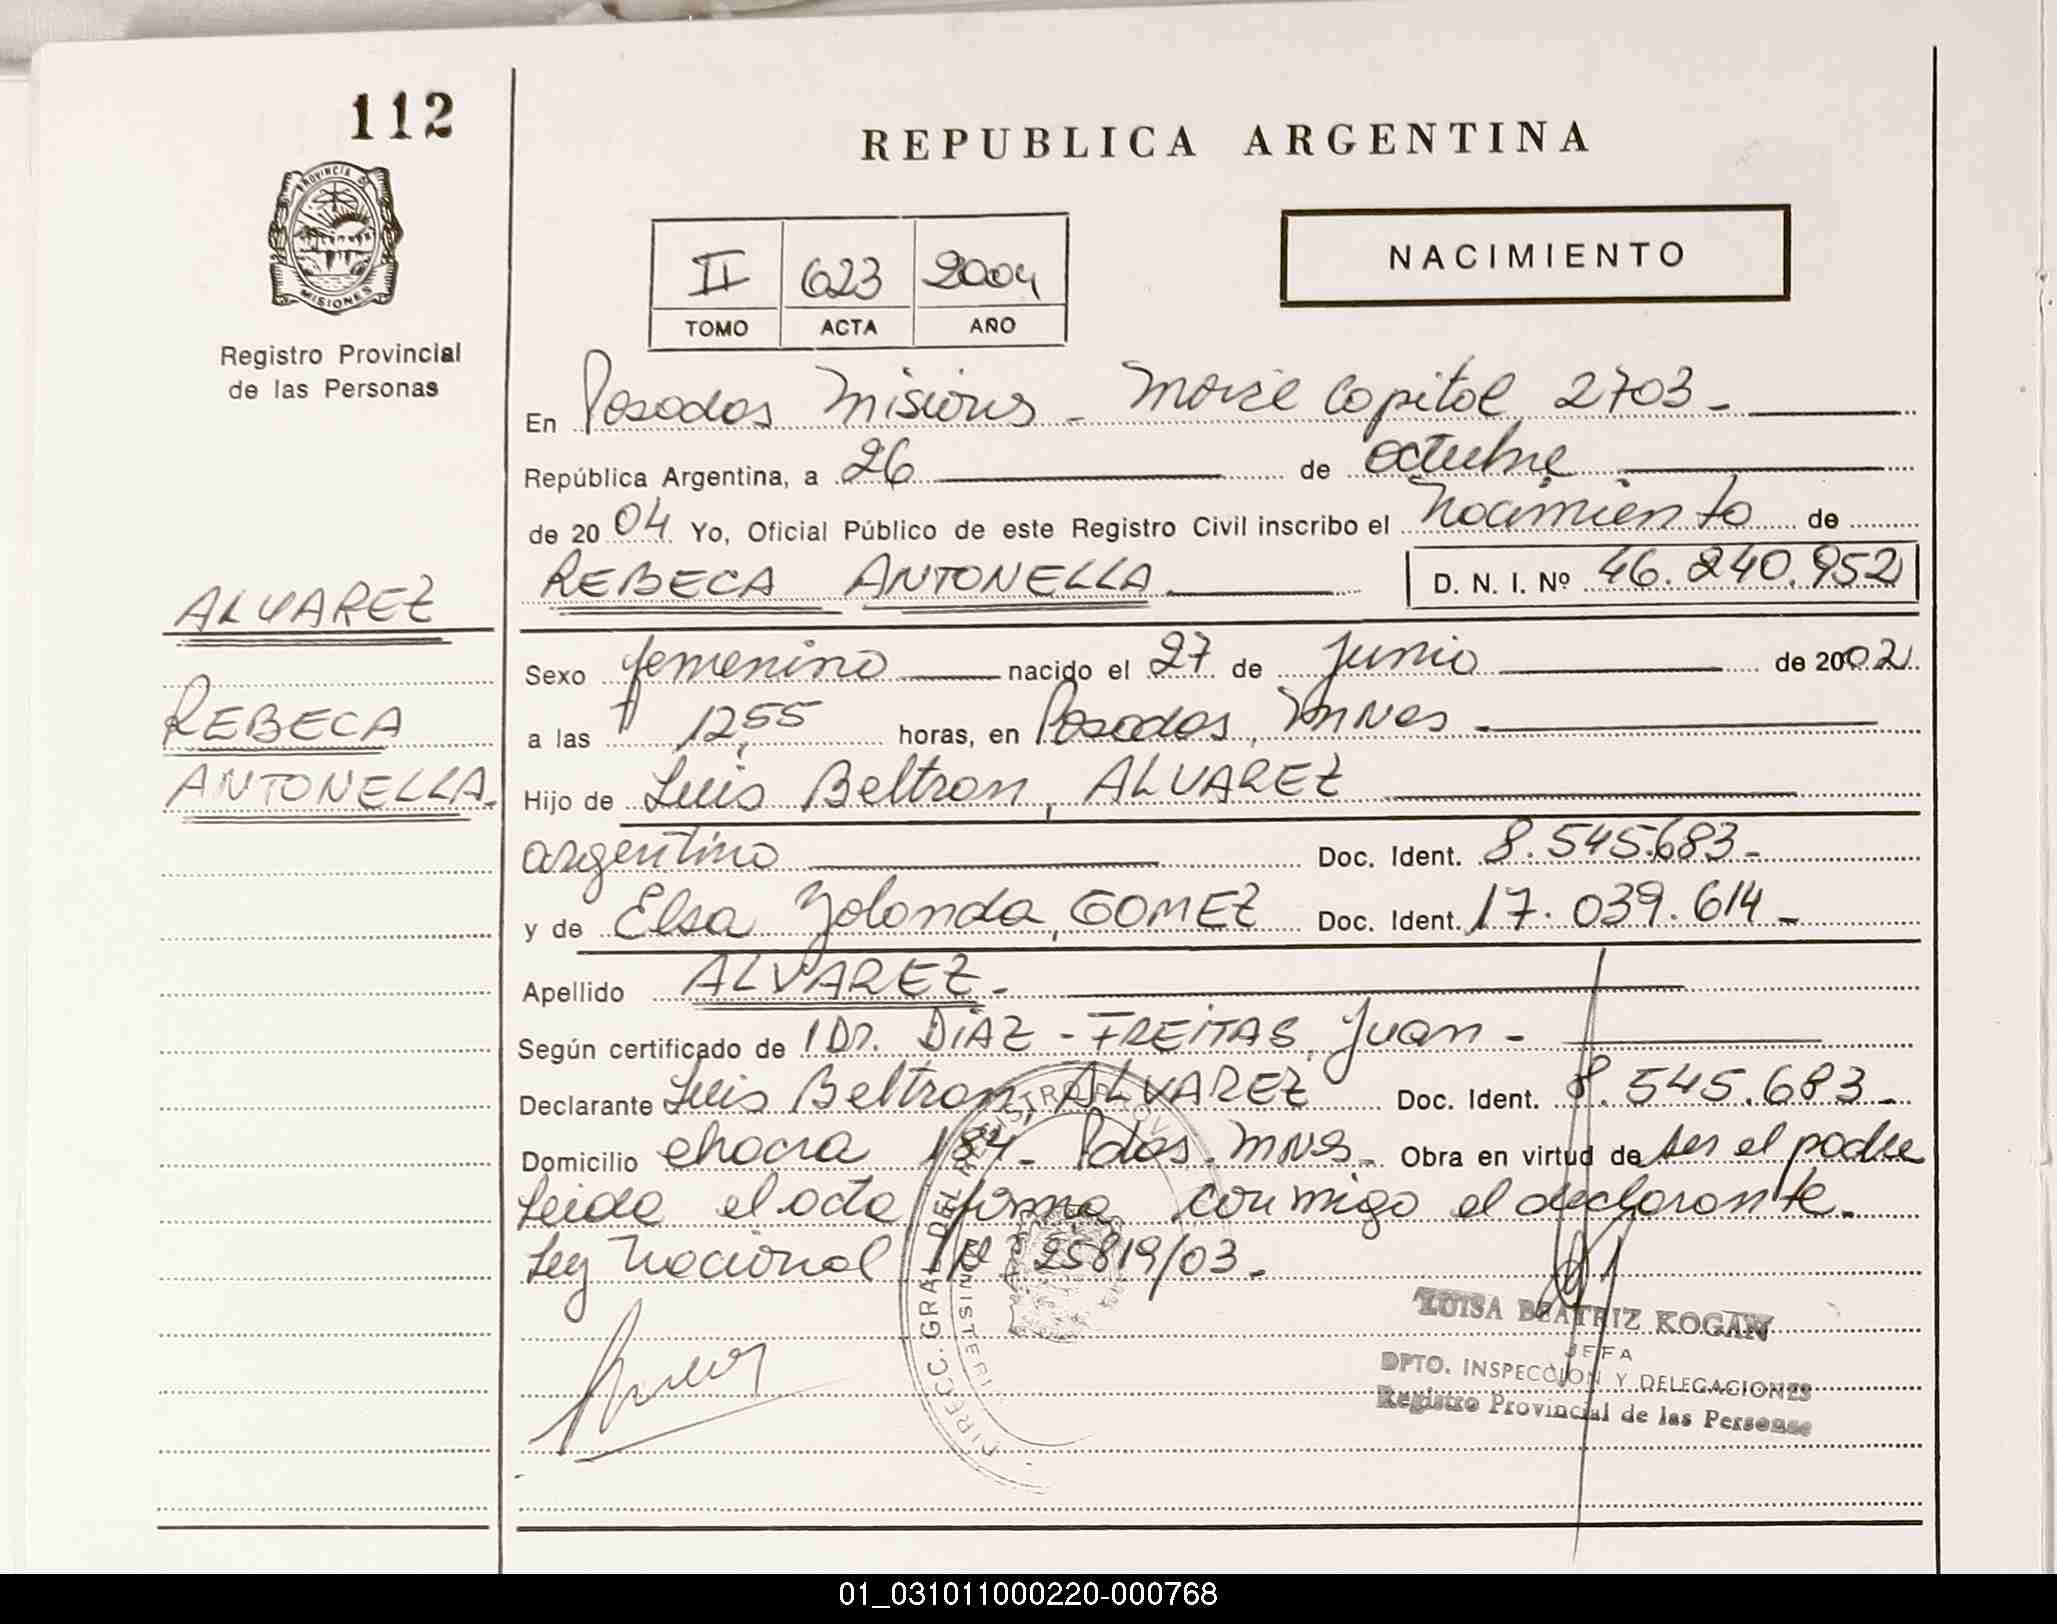 112
REPUBLICA ARGENTINA
PROVINCIA DE
MISIONES
Registro Provincial
de las Personas
II 623 2004
TOMO ACTA AÑO
NACIMIENTO
En Posadas Misiones - Capital 2703 -
República Argentina, a 26 de octubre
de 2004 Yo, Oficial Público de este Registro Civil inscribo el Nacimiento de
REBECA ANTONELLA D. N. I. Nº 46.240.952
ALVAREZ
REBECA
ANTONELLA.
Sexo femenino nacido el 27 de Junio de 2002
a las 12,55 horas, en Posadas, Mnes -
Hijo de Luis Beltran, ALVAREZ
argentino Doc. Ident. 8.545.683 -
y de Elsa Yolanda, GOMEZ Doc. Ident. 17.039.614 -
Apellido ALVAREZ -
Según certificado de Dr. DIAZ - FREITAS, Juan -
Declarante Luis Beltran, ALVAREZ Doc. Ident. 8.545.683 -
Domicilio chacra 184 - Pdas. Mns - Obra en virtud de ser el padre
Leida el acta firma conmigo el declarante.
Ley Nacional Nº 25819/03 -
DIRECC. GRAL. DEL REGISTRO PROV
MINISTERI
LUISA BEATRIZ KOGAN
JEFA
DPTO. INSPECCION Y DELEGACIONES
Registro Provincial de las Personas
01_031011000220-000768